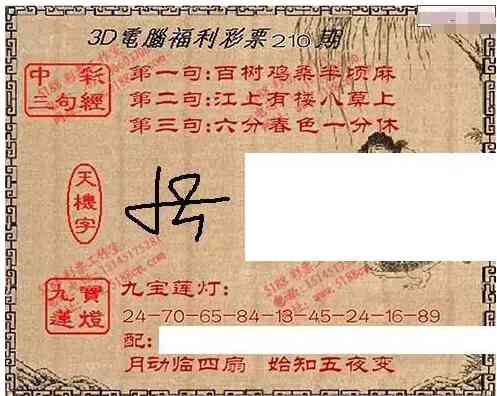 3D電腦福利彩票210期
中彩
三句經
第一句:百树鸡桑半顷麻
第二句:江上有楼八莫上
第三句:六分春色一分休
天機字
九寶
蓮燈
九宝莲灯:
24-70-65-84-13-45-24-16-89
配:
月动临四扇 始知五夜变